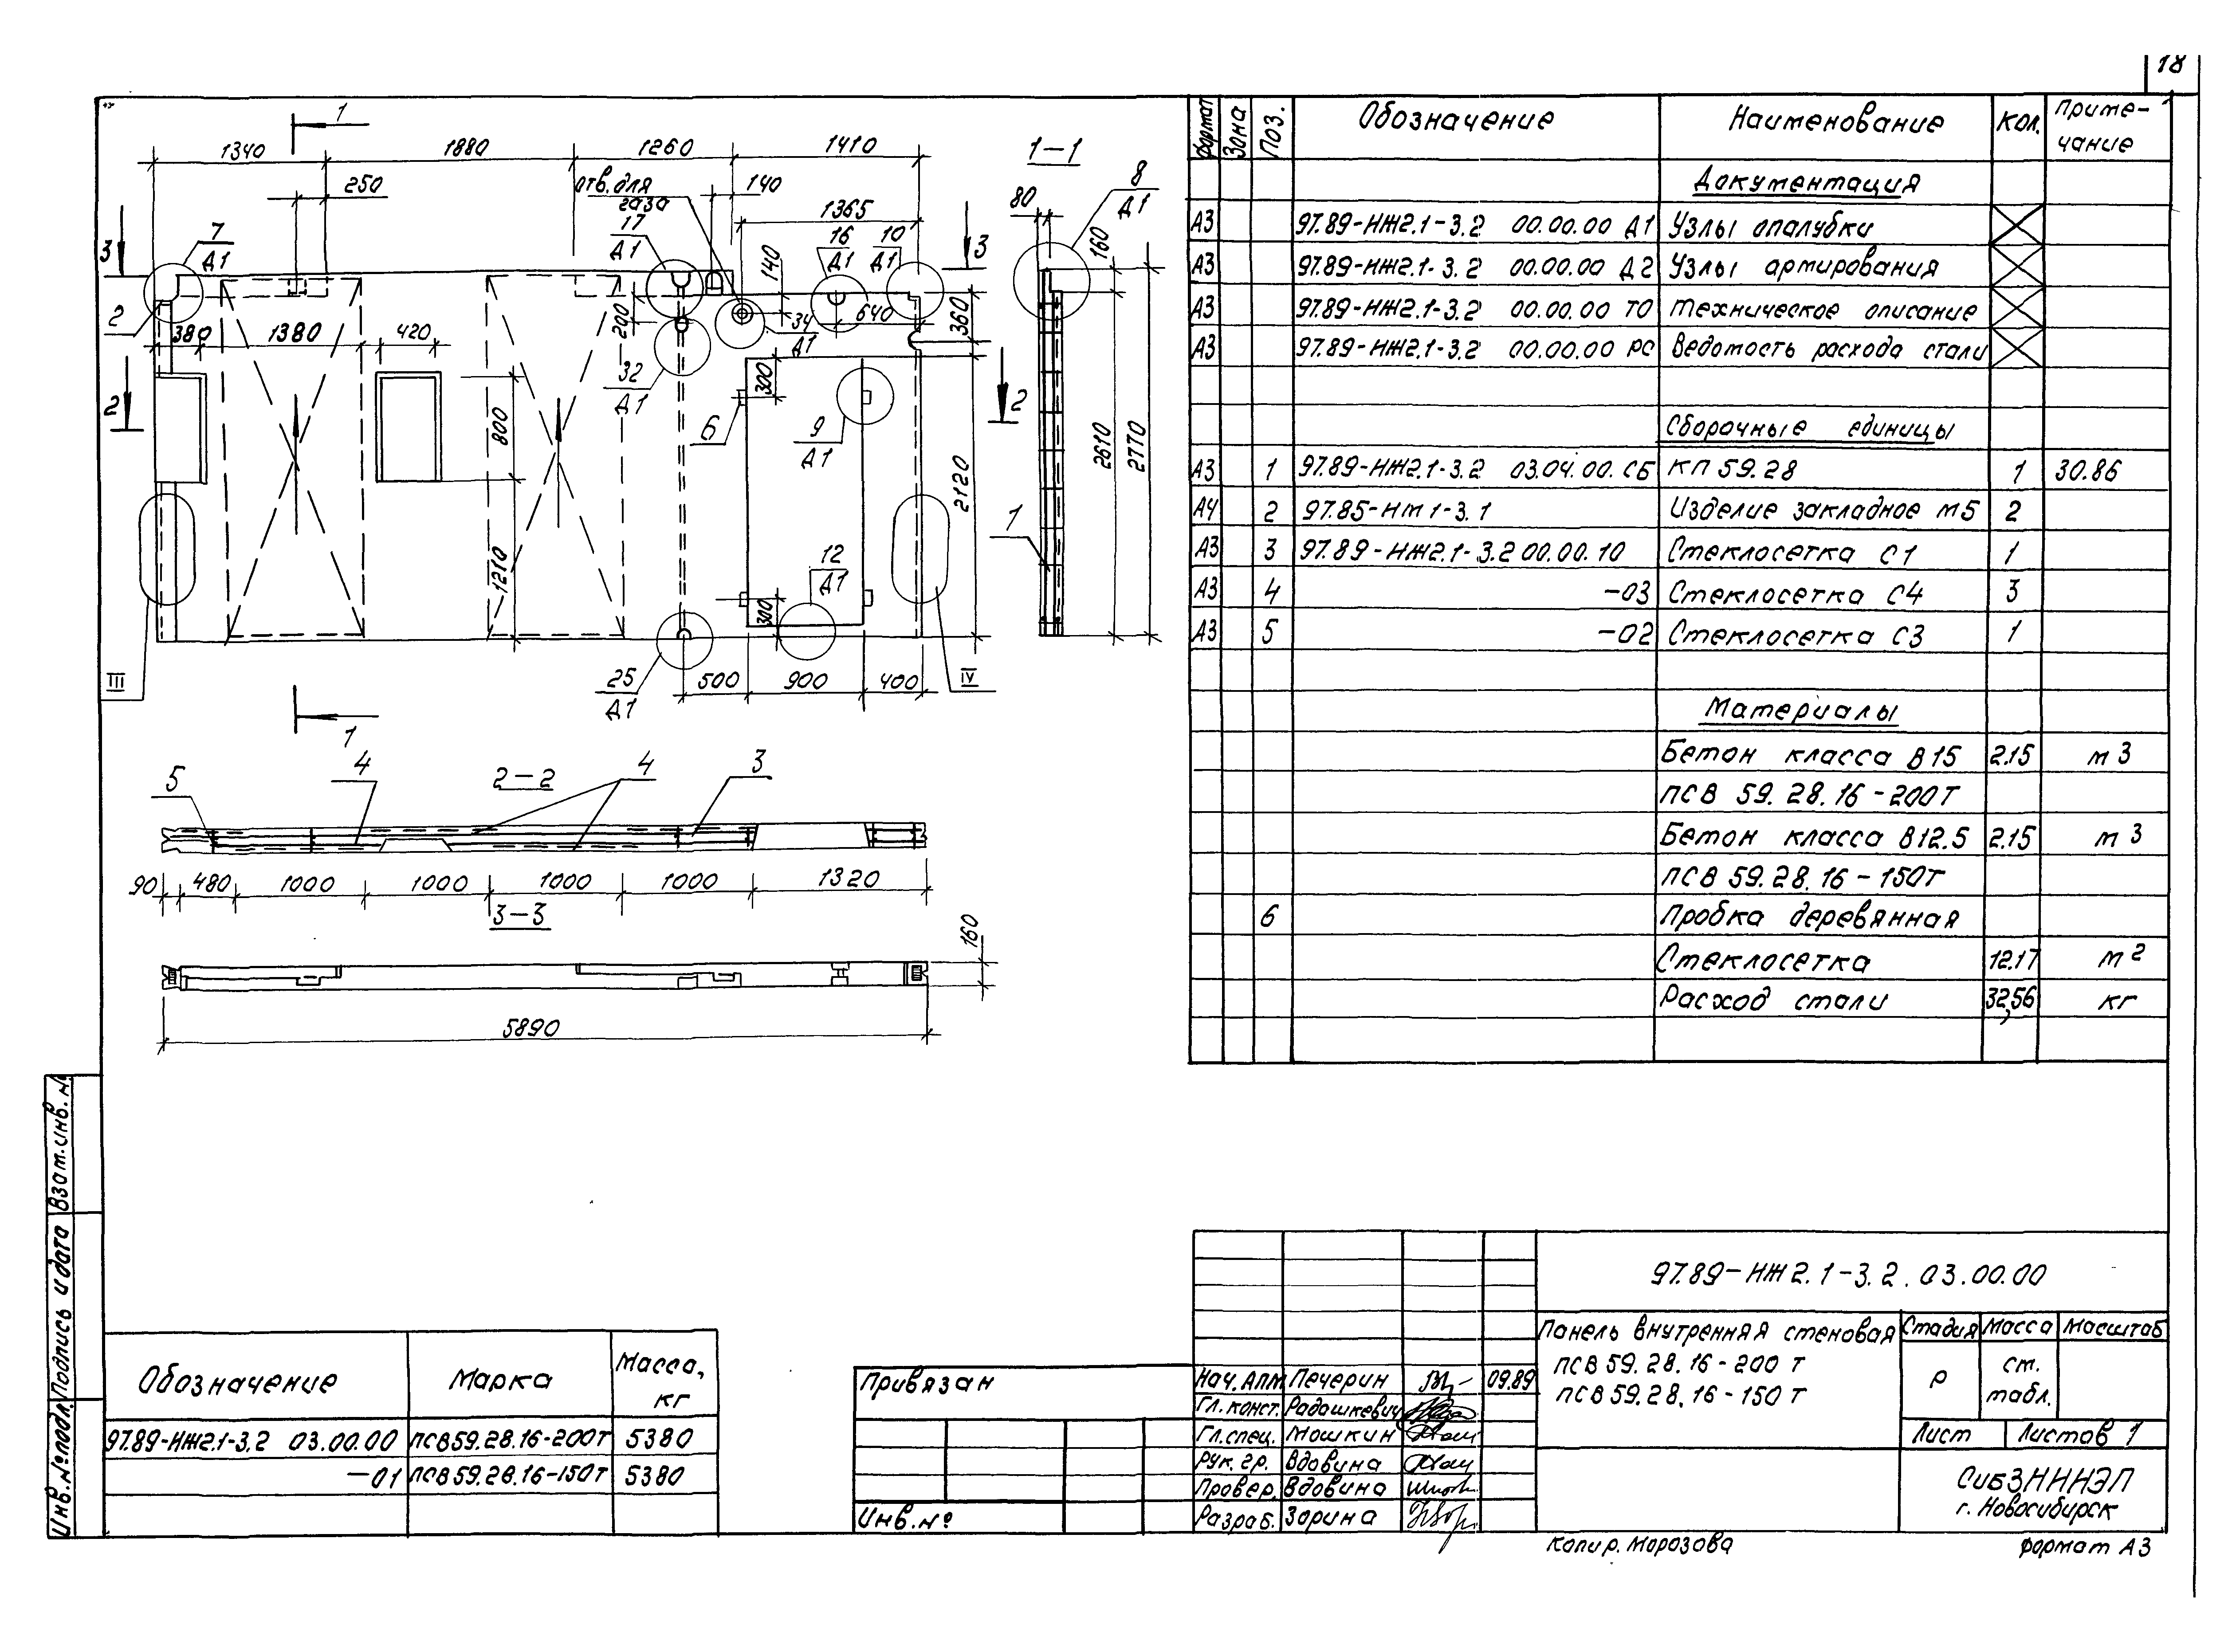 18
1
1340 1880 1260 1410
250 отв. для газа 140
1365
7
Д1
17
Д1
16
Д1
10
Д1
3 3
140
2
380 1380 420
200
34
Д1
640
360
32
Д1
300
6
9
Д1
2 2
800
1210
2120
12
Д1
300
III
IV
25
Д1
500 900 400
1
1-1
80
8
Д1
160
2610
2770
1
2-2
5 4 4 3
90 480 1000 1000 1000 1000 1320
3-3
160
5890
Формат Зона Поз. Обозначение Наименование Кол. Приме-
чание
Документация
А3 97.89-НЖ2.1-3.2 00.00.00 Д1 Узлы опалубки
А3 97.89-НЖ2.1-3.2 00.00.00 Д2 Узлы армирования
А3 97.89-НЖ2.1-3.2 00.00.00 ТО Техническое описание
А3 97.89-НЖ2.1-3.2 00.00.00 РС Ведомость расхода стали
Сборочные единицы
А3 1 97.89-НЖ2.1-3.2 03.04.00.СБ КП 59.28 1 30.86
А4 2 97.85-НМ1-3.1 Изделие закладное М5 2
А3 3 97.89-НЖ2.1-3.2 00.00.10 Стеклосетка С1 1
А3 4 -03 Стеклосетка С4 3
А3 5 -02 Стеклосетка С3 1
Материалы
Бетон класса В15 2.15 м3
ПСВ 59.28.16-200Т
Бетон класса В12.5 2.15 м3
ПСВ 59.28.16-150Т
6 Пробка деревянная
Стеклосетка 12.17 м2
Расход стали 32,56 кг
Взам.инв.№
Подпись и дата
Инв.№подл.
Обозначение Марка Масса,
кг
97.89-НЖ2.1-3.2 03.00.00 ПСВ59.28.16-200Т 5380
-01 ПСВ59.28.16-150Т 5380
Привязан
Инв.№
97.89-НЖ2.1-3.2.03.00.00
Панель внутренняя стеновая
ПСВ 59.28.16-200 Т
ПСВ 59.28.16-150 Т
Стадия Масса Масштаб
Р ст.
табл.
Лист Листов 1
Нач.АПМ Печерин 09.89
Гл.конст. Радашкевич
Гл.спец. Мошкин
Рук.гр. Вдовина
Провер. Вдовина
Разраб. Зорина
СибЗНИИЭП
г. Новосибирск
Копир. Морозова Формат А3